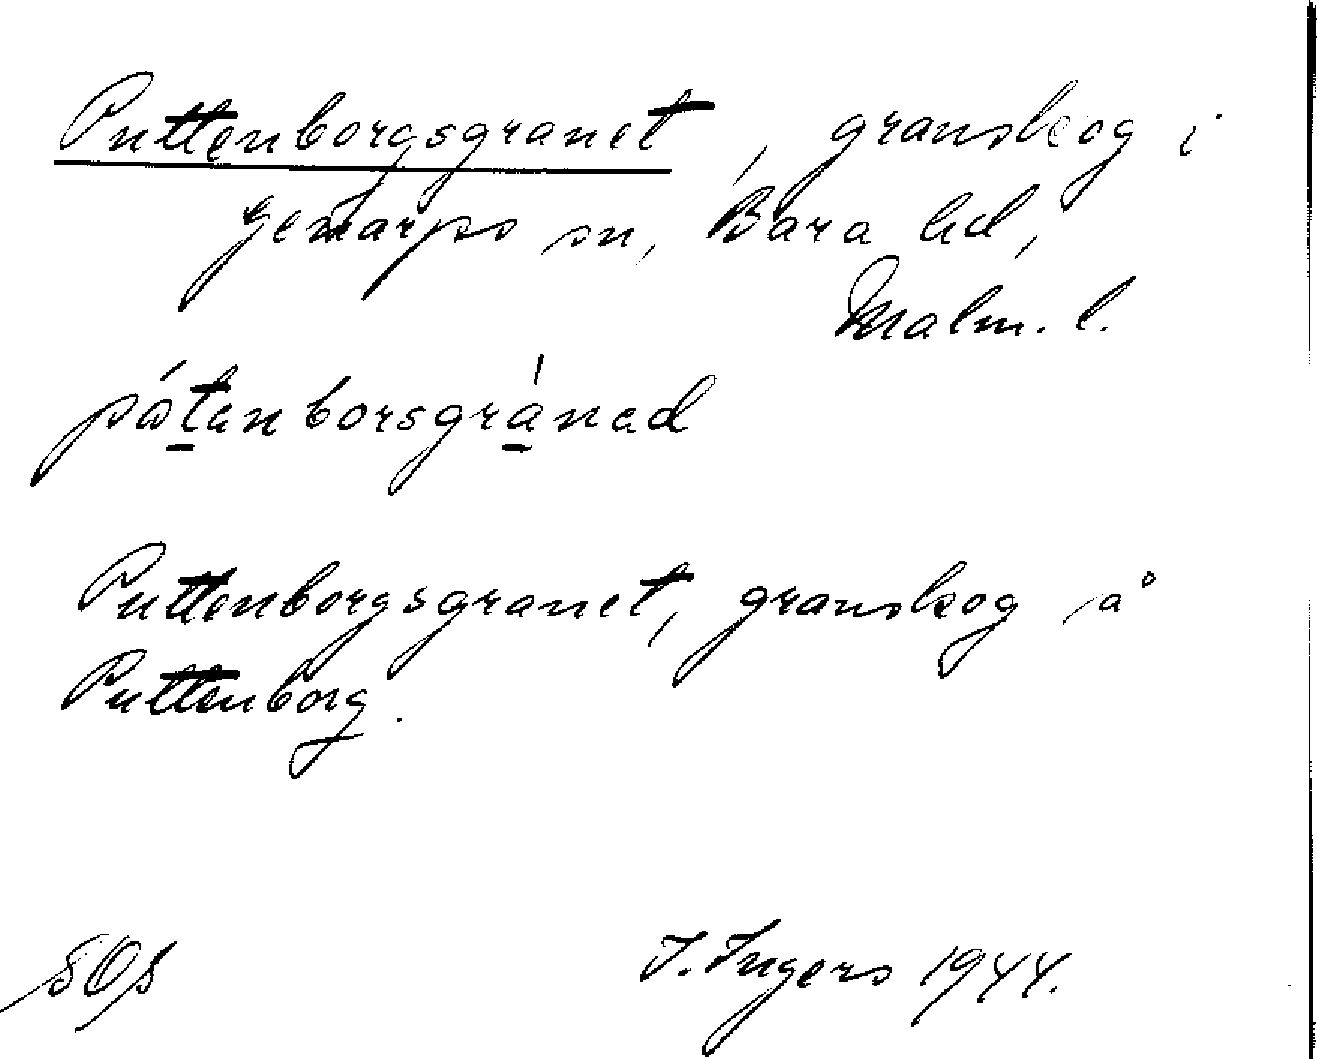 Puttenborgsgranet, granskog i
Genarps sn, Bara hd,
Malm. l.
Puttenborgsgranet, granskog på
Puttenborg.
I. Ingers 1944.